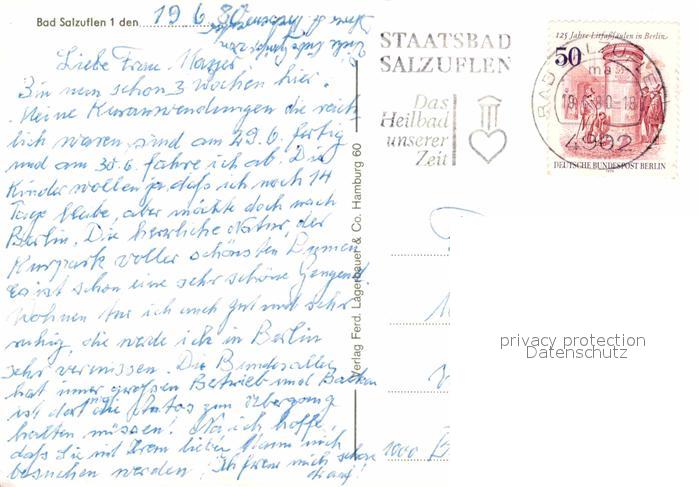 Bad Salzuflen 1 den 19.6.80
Liebe Frau
Bin nun schon 3 Wochen hier.
Meine Kuranwendungen die reich
lich waren, sind am 29.6. fertig
und am 30.6. fahre ich ab. Die
Kinder wollen ja, daß ich noch 14
Tage bleibe, aber möchte doch nach
Berlin. Die herrliche Natur, der
Kurpark voller schönsten Blumen
Es ist schon eine sehr schöne Gengend.
Wohnen tue ich auch gut und sehr
ruhig, die werde ich in Berlin
sehr vermissen. Die Bundesallee
hat immer großen Betrieb und
ist dort die Autos zum Übergang
halten müssen! Na ich hoffe,
daß Sie mit Ihrem lieben Mann mich
besuchen werden. Ich freue mich schon
drauf!
Verlag Ferd. Lagerbauer & Co. Hamburg 60
STAATSBAD
SALZUFLEN
Das
Heilbad
unserer
Zeit
BAD SALZUFLEN 1
ma
19.6.80-18
4902
125 Jahre Litfaßsäulen in Berlin
50
DEUTSCHE BUNDESPOST BERLIN
1000
privacy protection
Datenschutz